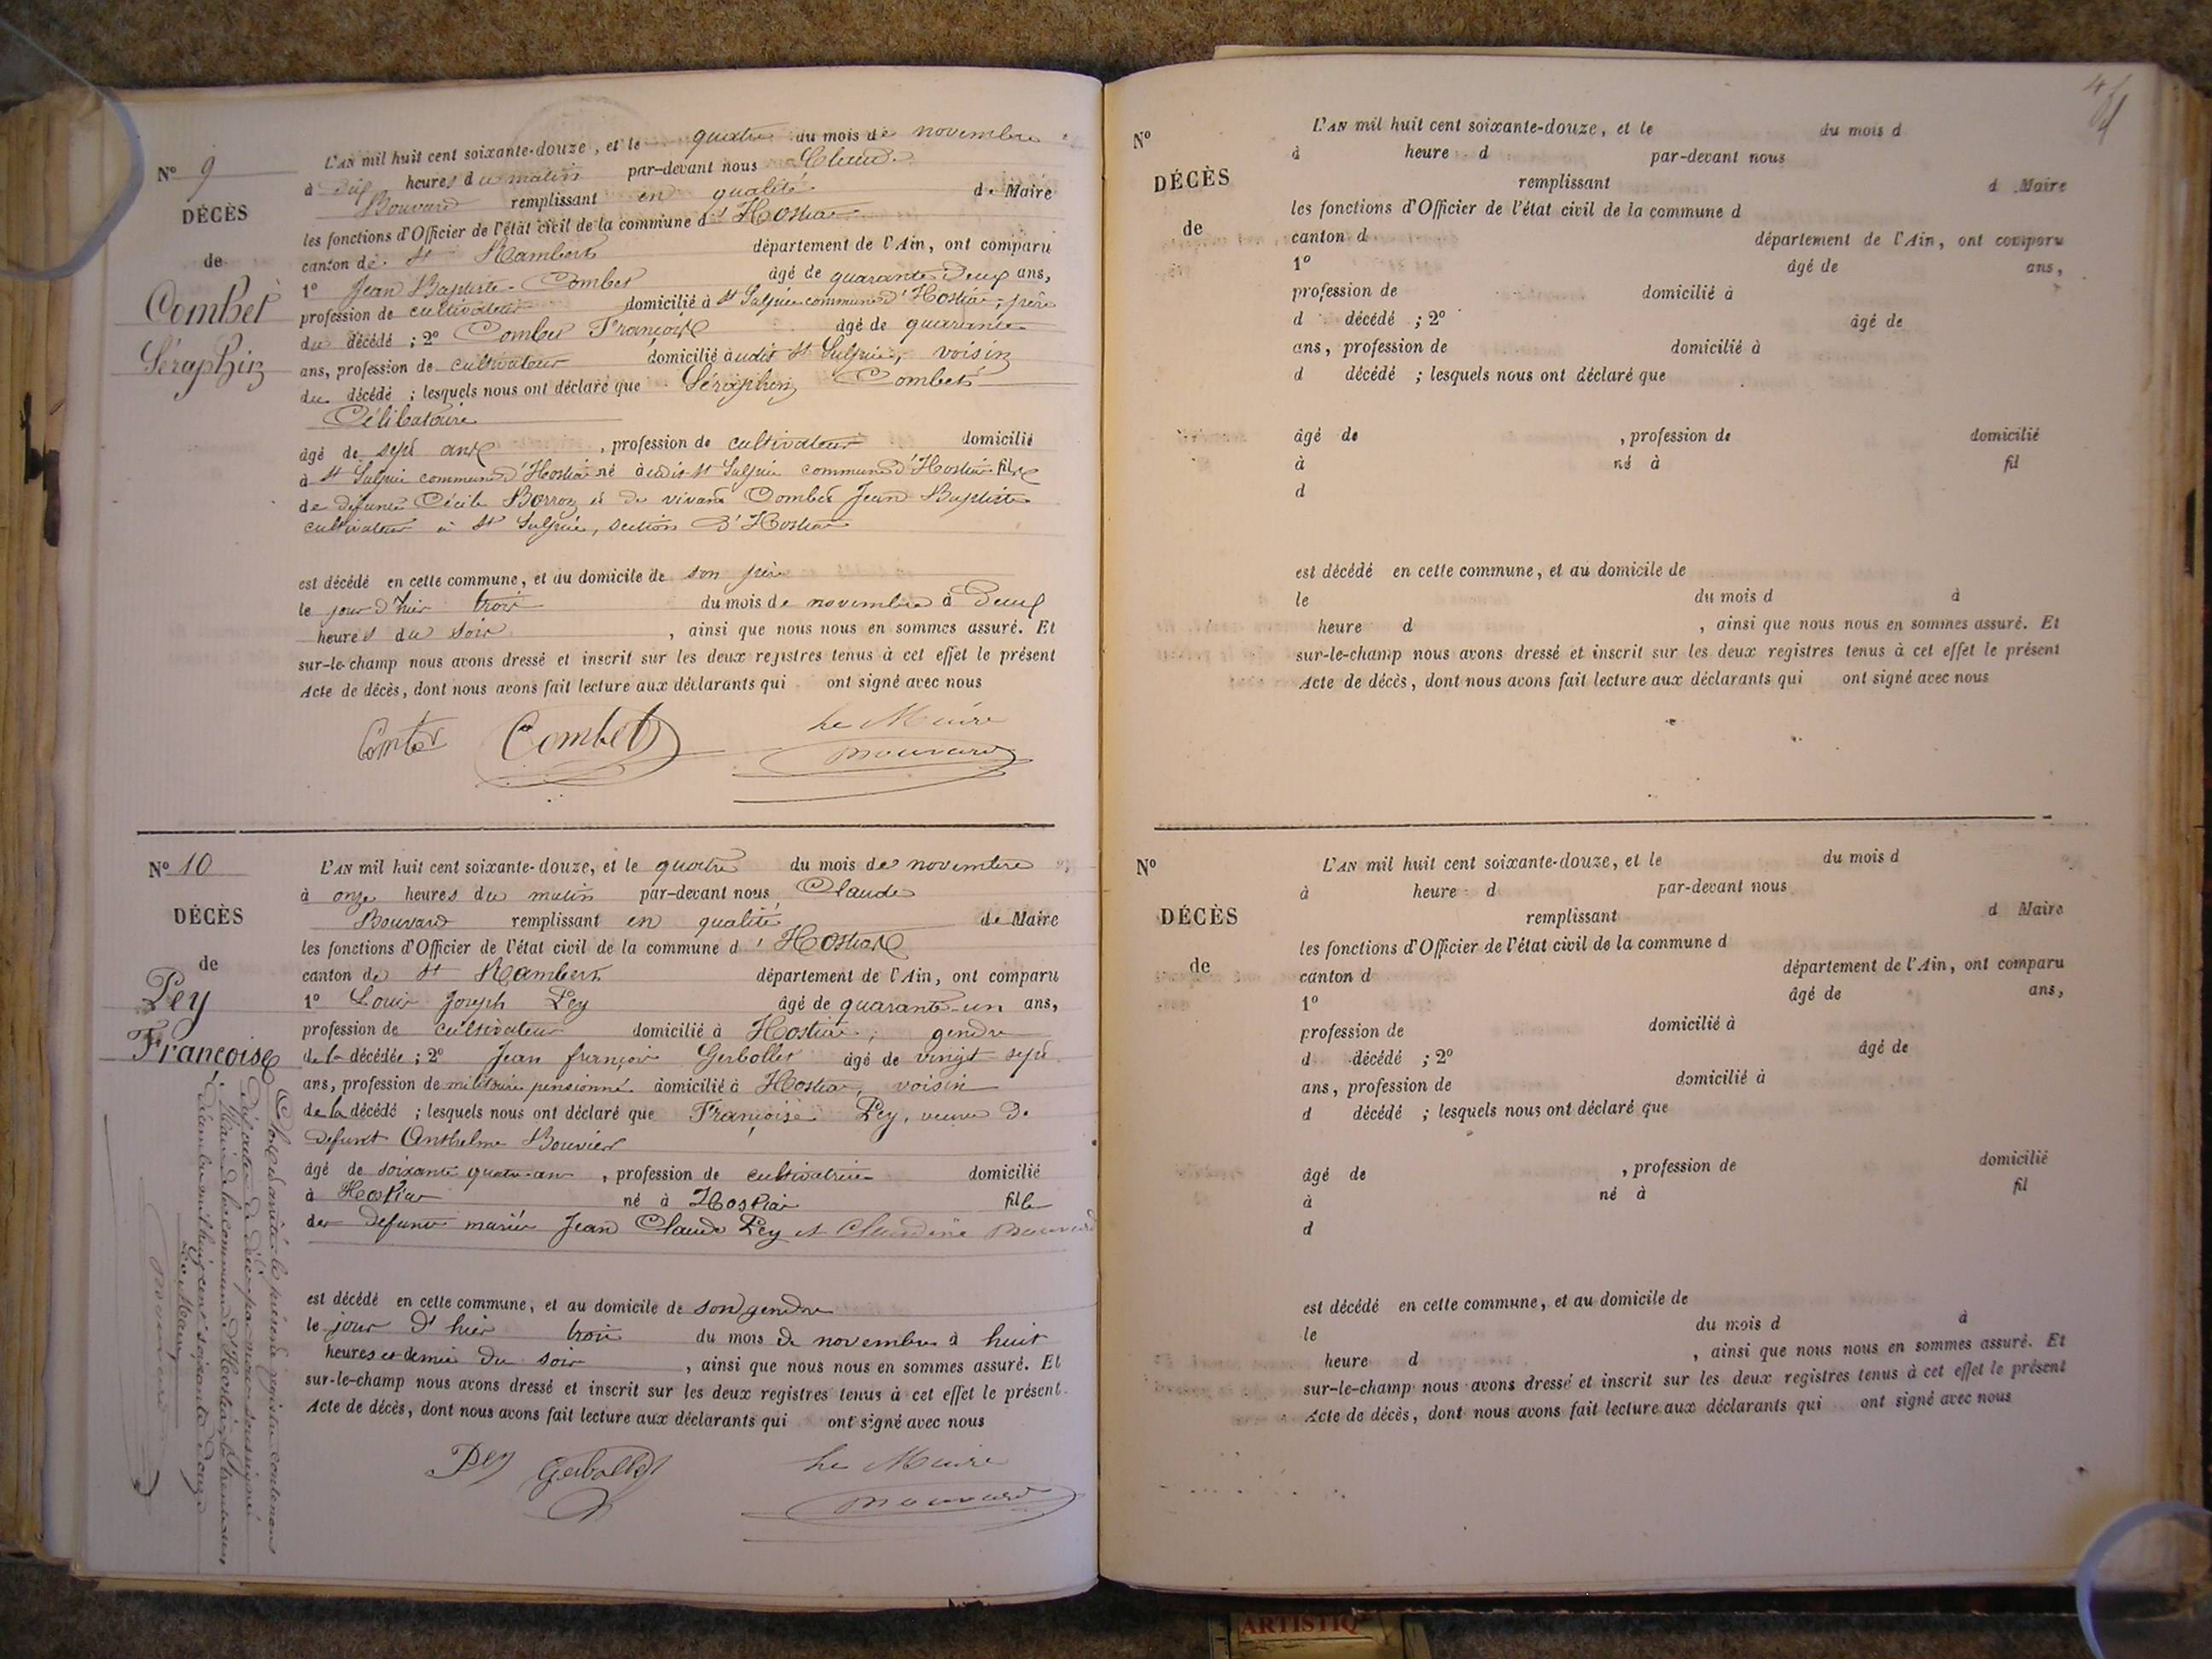 Nº 9
DÉCÈS
de
Combet
Séraphin
L'AN mil huit cent soixante-douze, et le quatre du mois de novembre
à dix heures du matin par-devant nous Claude
Bouvard remplissant en qualité de Maire
les fonctions d'Officier de l'état civil de la commune d'Hostiar
canton de St Rambert département de l'Ain, ont comparu
1º Jean Baptiste Combet âgé de quarante deux ans,
profession de cultivateur domicilié à St Sulpice commune d'Hostiar, père
du décédé ; 2º Combet François âgé de quarante
ans, profession de cultivateur domicilié audit St Sulpice, voisin
du décédé ; lesquels nous ont déclaré que Séraphin Combet
Célibataire
âgé de sept ans, profession de cultivateur domicilié
à St Sulpice commune d'Hostiar né audit St Sulpice commune d'Hostiar fils
de défunte Cécile Borroz et de vivant Combet Jean Baptiste
cultivateur à St Sulpice, section d'Hostiar
est décédé en cette commune, et au domicile de son père
le jour d'hier trois du mois de novembre à deux
heures du soir, ainsi que nous nous en sommes assuré. Et
sur-le-champ nous avons dressé et inscrit sur les deux registres tenus à cet effet le présent
Acte de décès, dont nous avons fait lecture aux déclarants qui ont signé avec nous
Combet Combet Le Maire
Bouvard
Nº 10
DÉCÈS
de
Pey
Françoise
L'AN mil huit cent soixante-douze, et le quatre du mois de novembre
à onze heures du matin par-devant nous Claude
Bouvard remplissant en qualité de Maire
les fonctions d'Officier de l'état civil de la commune d'Hostiar
canton de St Rambert département de l'Ain, ont comparu
1º Louis Joseph Pey âgé de quarante-un ans,
profession de cultivateur domicilié à Hostiar, gendre
de la décédée ; 2º Jean françois Gerbollet âgé de vingt-sept
ans, profession de militaire pensionné domicilié à Hostiar, voisin
de la décédé ; lesquels nous ont déclaré que Françoise Pey, veuve de
defunt Anthelme Bouvier
âgé de soixante quatre ans, profession de cultivatrice domicilié
à Hostiar né à Hostiar fille
des defunts mariés Jean Claude Pey et Claudine Bouvard
est décédé en cette commune, et au domicile de son gendre
le jour d'hier trois du mois de novembre à huit
heures et demie du soir, ainsi que nous nous en sommes assuré. Et
sur-le-champ nous avons dressé et inscrit sur les deux registres tenus à cet effet le présent
Acte de décès, dont nous avons fait lecture aux déclarants qui ont signé avec nous
Pey Gerbollet Le Maire
Bouvard
Clos et arrêté le présent registre contenant
dix actes de décès par nous soussigné
Maire de la commune d'Hostiar le trente un
décembre mil huit cent soixante douze
Le Maire
Bouvard
Nº
DÉCÈS
de
L'AN mil huit cent soixante-douze, et le du mois d
à heure d par-devant nous
remplissant d Maire
les fonctions d'Officier de l'état civil de la commune d
canton d département de l'Ain, ont comparu
1º âgé de ans,
profession de domicilié à
d décédé ; 2º âgé de
ans, profession de domicilié à
d décédé ; lesquels nous ont déclaré que
âgé de , profession de domicilié
à né à fil
d
est décédé en cette commune, et au domicile de
le du mois d à
heure d , ainsi que nous nous en sommes assuré. Et
sur-le-champ nous avons dressé et inscrit sur les deux registres tenus à cet effet le présent
Acte de décès, dont nous avons fait lecture aux déclarants qui ont signé avec nous
Nº
DÉCÈS
de
L'AN mil huit cent soixante-douze, et le du mois d
à heure d par-devant nous
remplissant d Maire
les fonctions d'Officier de l'état civil de la commune d
canton d département de l'Ain, ont comparu
1º âgé de ans,
profession de domicilié à
d décédé ; 2º âgé de
ans, profession de domicilié à
d décédé ; lesquels nous ont déclaré que
âgé de , profession de domicilié
à né à fil
d
est décédé en cette commune, et au domicile de
le du mois d à
heure d , ainsi que nous nous en sommes assuré. Et
sur-le-champ nous avons dressé et inscrit sur les deux registres tenus à cet effet le présent
Acte de décès, dont nous avons fait lecture aux déclarants qui ont signé avec nous
ARTISTIQ